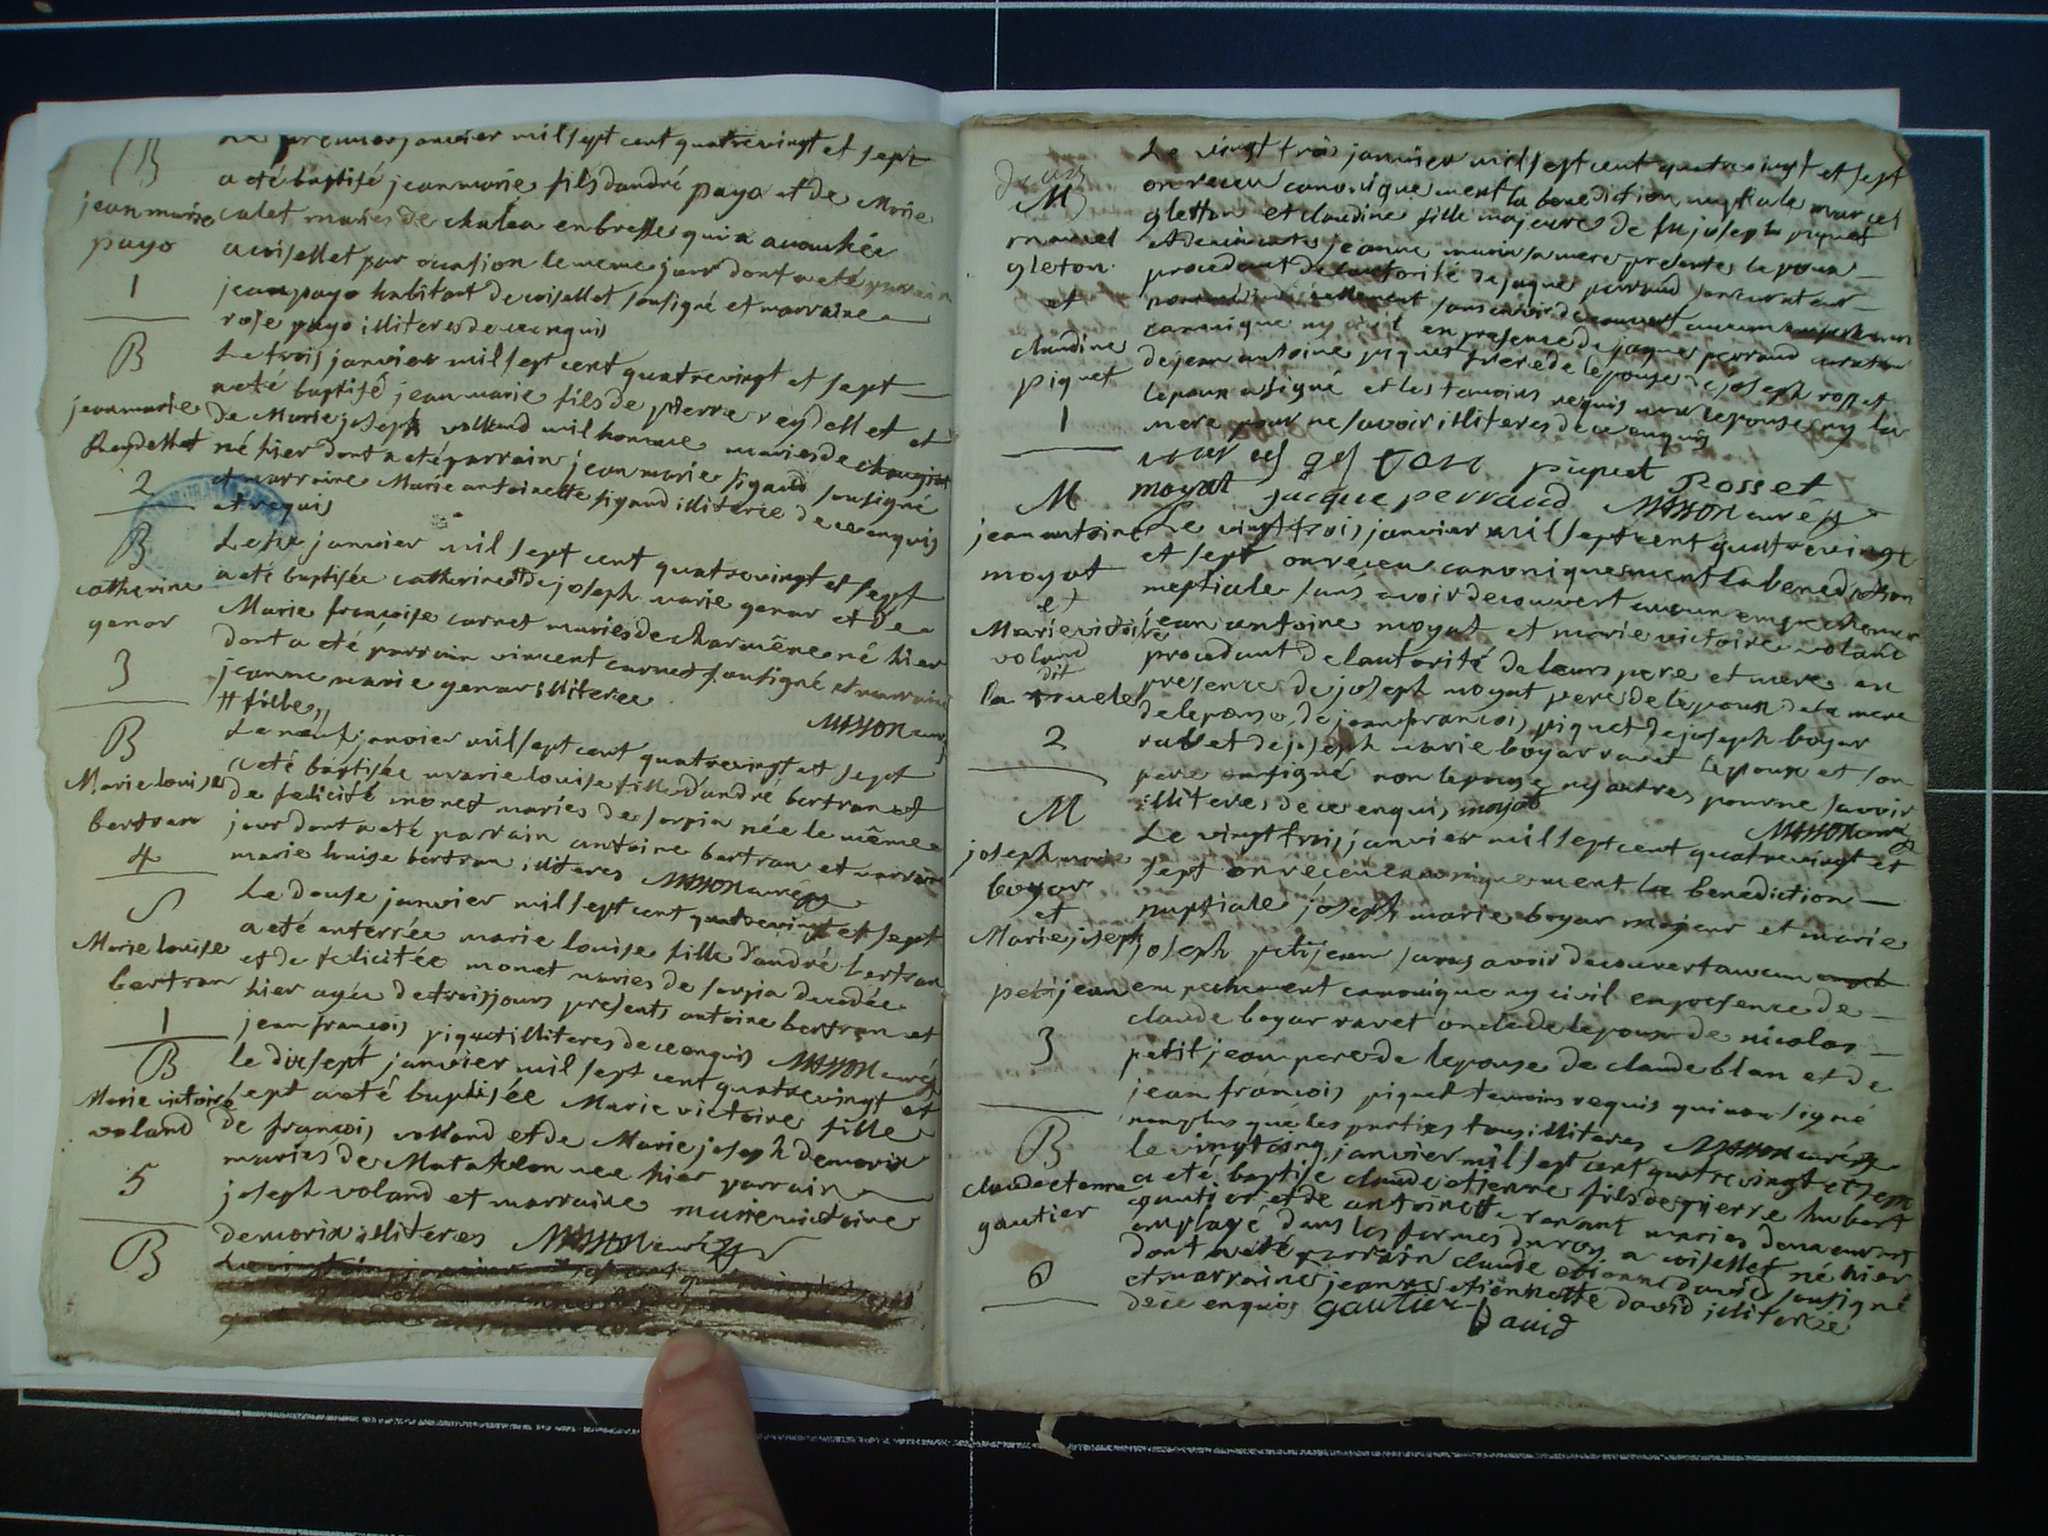 B
Le premier janvier mil sept cent quatrevingt et sept
a eté baptisé jean marie fils dandré payo et de Marie
jean marie
payo
1
calet mariés de chalea en bresse qui a accouchée
a coisellet par ocasion le meme jour dont a eté parrain
jean payo habitant de coisellet sousigné et marraine
rose payo illiteres de ce enquis
B
jean marie
Reydellet
2
Le trois janvier mil sept cent quatrevingt et sept
a eté baptisé jean marie fils de pierre reydellet et
de Marie joseph volland mil homme mariés de
né hier dont a eté parrain jean marie sigaud sousigné
et marraine Marie antoinette sigaud illiterée de ce enquis
et requis
B
catherine
ganar
3
Le janvier mil sept cent quatrevingt et sept
a eté baptisée catherine # de joseph marie ganar et de
Marie françoise carnet mariés de charmêne né hier
dont a eté parrain vincent carnet sousigné et marraine
jeanne marie ganar illiteree
# fille,,
MASSON curé
B
Marie louise
bertran
4
Le neuf janvier mil sept cent quatrevingt et sept
a eté baptisée marie louise fille d'andré bertran et
de felicité monet mariés de sorpia née le même
jour dont a eté parrain antoine bertran et marraine
marie louise bertran illiteres MASSON curé
S
Marie louise
bertran
1
Le douse janvier mil sept cent quatrevingt et sept
a eté enterrée marie louise fille d'andré bertran
et de felicitée monet mariés de sorpia decedée
hier agée de trois jours presents antoine bertran et
jean françois piquet illiteres de ce enquis MASSON curé
B
Marie victoire
voland
5
le dixsept janvier mil sept cent quatrevingt et
sept a eté baptisée Marie victoire fille
de françois volland et de Marie joseph demorix
mariés de Matafelon née hier parrain
joseph voland et marraine marie victoire
demorix illiteres MASSON curé
B
M
marcel
gleton
et
claudine
piquet
1
Le vingt trois janvier mil sept cent quatrevingt et sept
on receu canoniquement la benediction nuptiale marcel
gletton et claudine fille majeure de fu joseph piquet
et de jeanne marin sa mere presentes lepoux
procedant de lautorité de jaque perraud son curateur
sans avoir decouvert aucun
canonique ny civil en presence de jaque perraud curateur
de jean antoine piquet frere de lepouse joseph rosset
lepoux a signé et les temoins requis non lepouse ny la
mere pour ne savoir illiteres de ce enquis
piquet Rosset
moyat jacque perraud MASSON curé
M
jean antoine
moyat
et
Marie victoire
voland
dit
la ruele
2
Le vingt trois janvier mil sept cent quatrevingt
et sept on receu canoniquement la benediction
neptiale sans avoir decouvert aucun
jean antoine moyat et marie victoire voland
procedant de lautorité de leurs pere et mere en
presence de joseph moyat pere de lepoux de la mere
de lepouse, de jean françois piquet de joseph boyar
ravet de joseph marie boyar ravet lepoux et son
pere ont signé non lepouse ny autres pour ne savoir
illiteres de ce enquis moyat
MASSON curé
M
joseph marie
boyar
et
Marie joseph
petijean
3
Le vingt trois janvier mil sept cent quatrevingt et
sept on receu canoniquement la benediction
nuptiale joseph marie boyar majeur et marie
joseph petijean sans avoir decouvert aucun
empechement canonique ny civil en presence de
claude boyar ravet oncle de lepoux de nicolas
petit jean pere de lepouse de claude blan et de
jean françois piquet temoins requis qui non signé
non plus que les parties tous illiteres MASSON curé
B
claude etienne
gautier
6
le vingt cinq janvier mil sept cent quatrevingt et sept
a eté baptisé claude etienne fils de pierre hubert
gautier et de antoinette ravant mariés demeurant
employé dans les fermes du roy a coisellet né hier
dont a eté parrain claude etienne david sousigné
et marraine jeanne etiennette david illiterée
de ce enquis gautier David